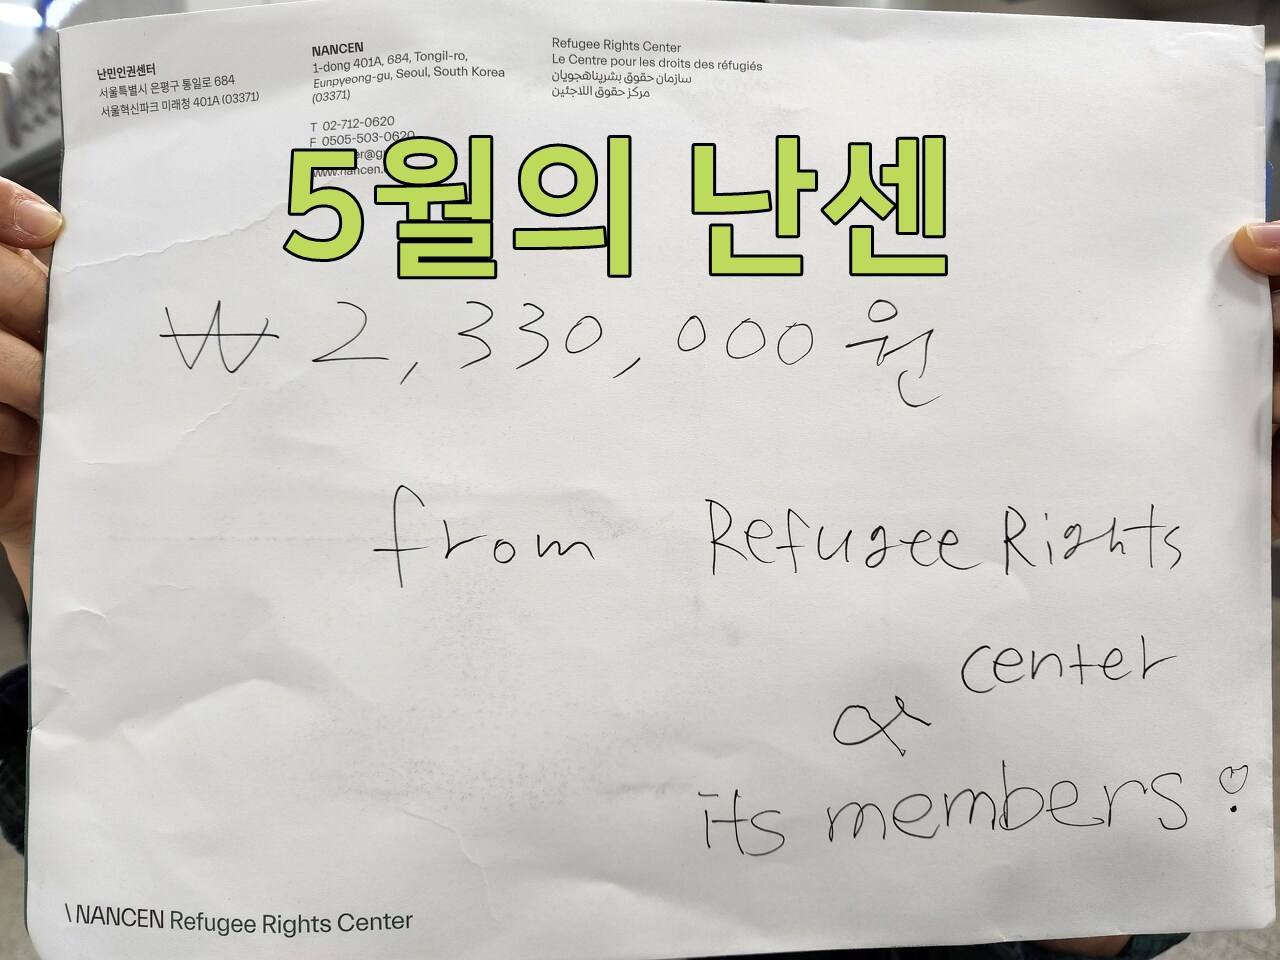 난민인권센터
서울특별시 은평구 통일로 684
서울혁신파크 미래청 401A (03371)
NANCEN
1-dong 401A, 684, Tongil-ro,
Eunpyeong-gu, Seoul, South Korea
(03371)
T 02-712-0620
F 0505-503-0620
www.nancen.
Refugee Rights Center
Le Centre pour les droits des réfugiés
سازمان حقوق بشرپناهجویان
مركز حقوق اللاجئين
5월의 난센
₩ 2,330,000원
from Refugee Rights
center
&
its members!
\ NANCEN Refugee Rights Center